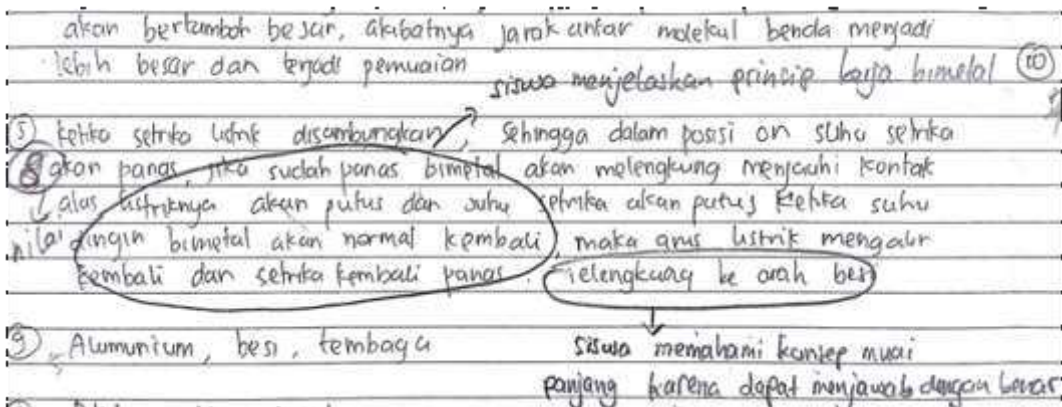 akan bertambah besar, akibatnya jarak antar molekul benda menjadi
lebih besar dan terjadi pemuaian
siswa menjelaskan prinsip kerja bimetal (10)
(5) Ketika setrika listrik disambungkan, sehingga dalam posisi on suhu setrika
8 akan panas, jika sudah panas bimetal akan melengkung menjauhi kontak
alas listriknya akan putus dan suhu setrika akan putus ketika suhu
nilai dingin bimetal akan normal kembali, maka arus listrik mengalir
kembali dan setrika kembali panas. Melengkung ke arah besi
(9) Alumunium, besi, tembaga
siswa memahami konsep muai
panjang karena dapat menjawab dengan benar